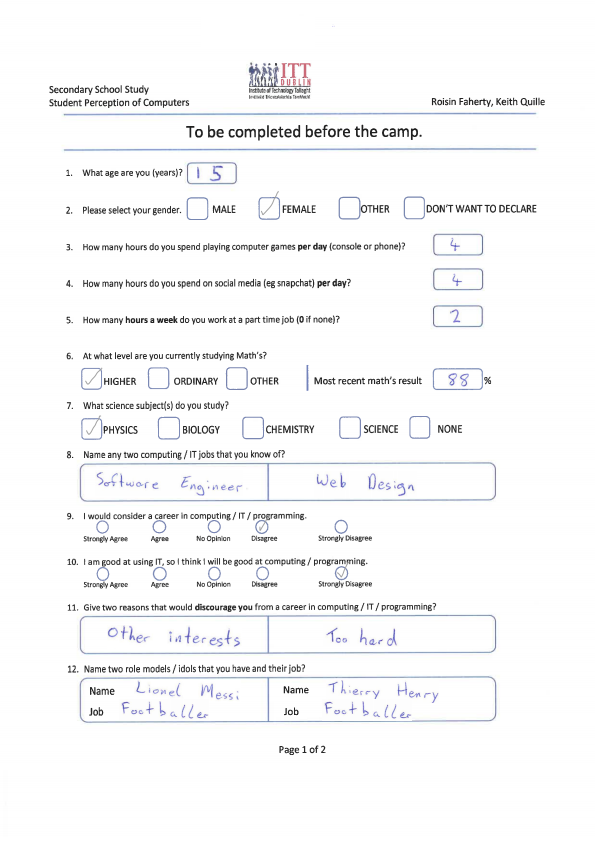 ITT
DUBLIN
Institute of Technology Tallaght
Secondary School Study
Student Perception of Computers
Roisin Faherty, Keith Quille
To be completed before the camp.
1. What age are you (years)? 15
2. Please select your gender. MALE FEMALE OTHER DON'T WANT TO DECLARE
3. How many hours do you spend playing computer games per day (console or phone)? 4
4. How many hours do you spend on social media (eg snapchat) per day? 4
5. How many hours a week do you work at a part time job (0 if none)? 2
6. At what level are you currently studying Math's?
HIGHER ORDINARY OTHER Most recent math's result 88 %
7. What science subject(s) do you study?
PHYSICS BIOLOGY CHEMISTRY SCIENCE NONE
8. Name any two computing / IT jobs that you know of?
Software Engineer Web Design
9. I would consider a career in computing / IT / programming.
Strongly Agree Agree No Opinion Disagree Strongly Disagree
10. I am good at using IT, so I think I will be good at computing / programming.
Strongly Agree Agree No Opinion Disagree Strongly Disagree
11. Give two reasons that would discourage you from a career in computing / IT / programming?
Other interests Too hard
12. Name two role models / idols that you have and their job?
Name Lionel Messi Name Thierry Henry
Job Footballer Job Footballer
Page 1 of 2